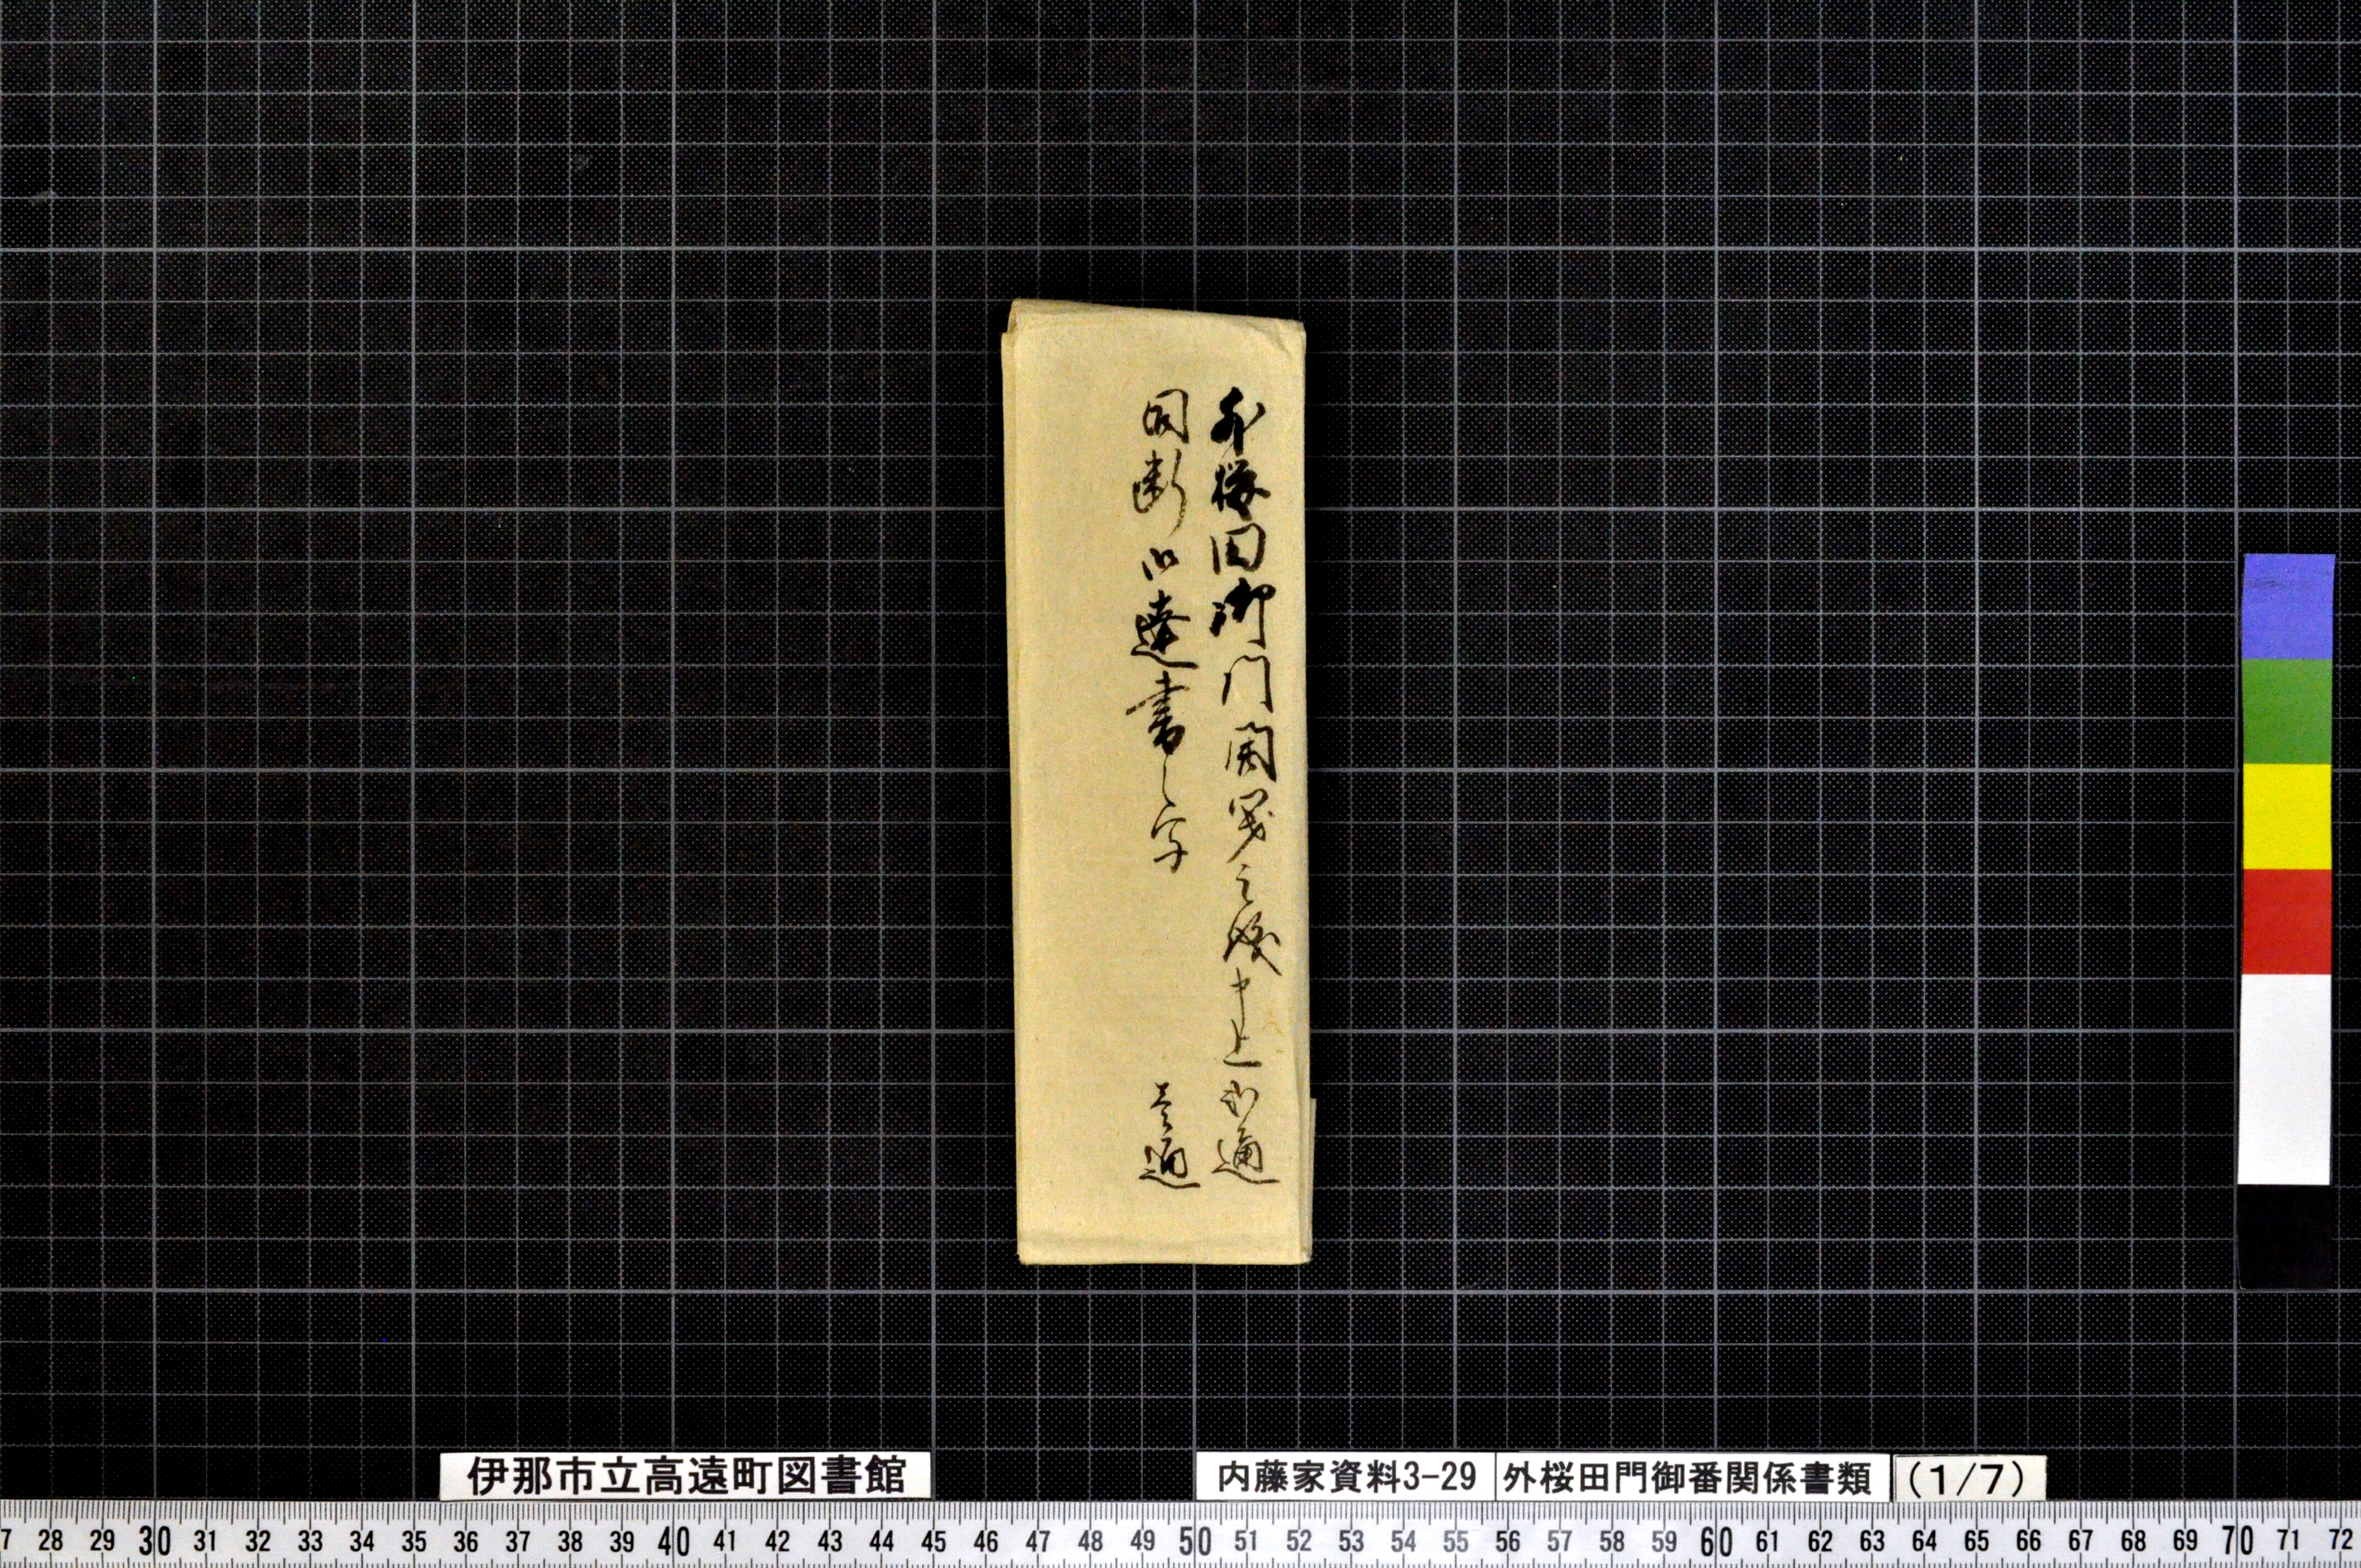 外桜田御門開之儀申上弐通
同断御達書写 壱通
伊那市立高遠町図書館
内藤家資料3-29 外桜田門御番関係書類 (1/7)
7 28 29 30 31 32 33 34 35 36 37 38 39 40 41 42 43 44 45 46 47 48 49 50 51 52 53 54 55 56 57 58 59 60 61 62 63 64 65 66 67 68 69 70 71 72